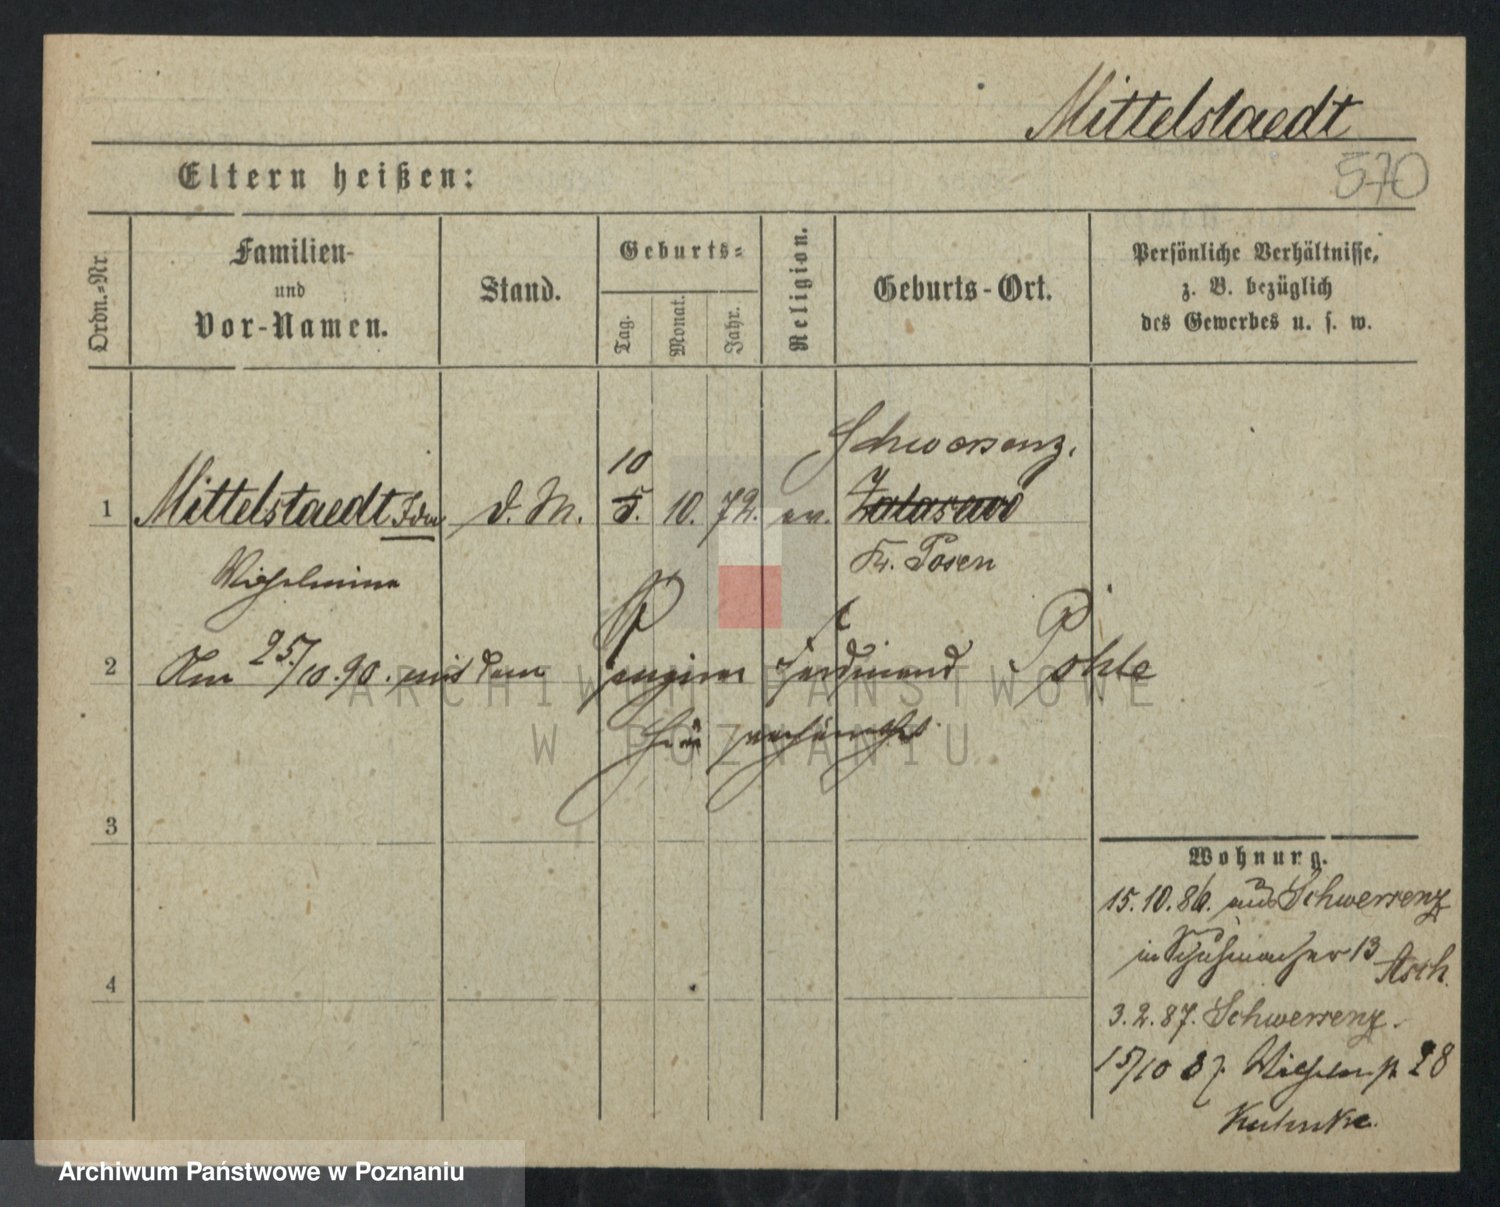 Mittelstaedt
570
Eltern heißen:
Ordn.=Nr.
Familien-
und
Vor-Namen.
Stand.
Geburts=
Tag.
Monat.
Jahr.
Religion.
Geburts-Ort.
Persönliche Verhältnisse,
z. B. bezüglich
des Gewerbes u. s. w.
Schwersenz.
10
1 Mittelstaedt Ida d. M. 5. 10. 72. ev.
Kr. Posen
Wilhelmine
2 Am 25./10.90. mit dem Ferdinand Pohle
hier
3
4
Wohnung.
15.10.86. aus Schwersenz
in Schuhmacher 13
Asch.
3.2.87. Schwersenz.
15/10 87. Wilhelmst. 28
Kuhnke.
ARCHIWUM PAŃSTWOWE
W POZNANIU
Archiwum Państwowe w Poznaniu